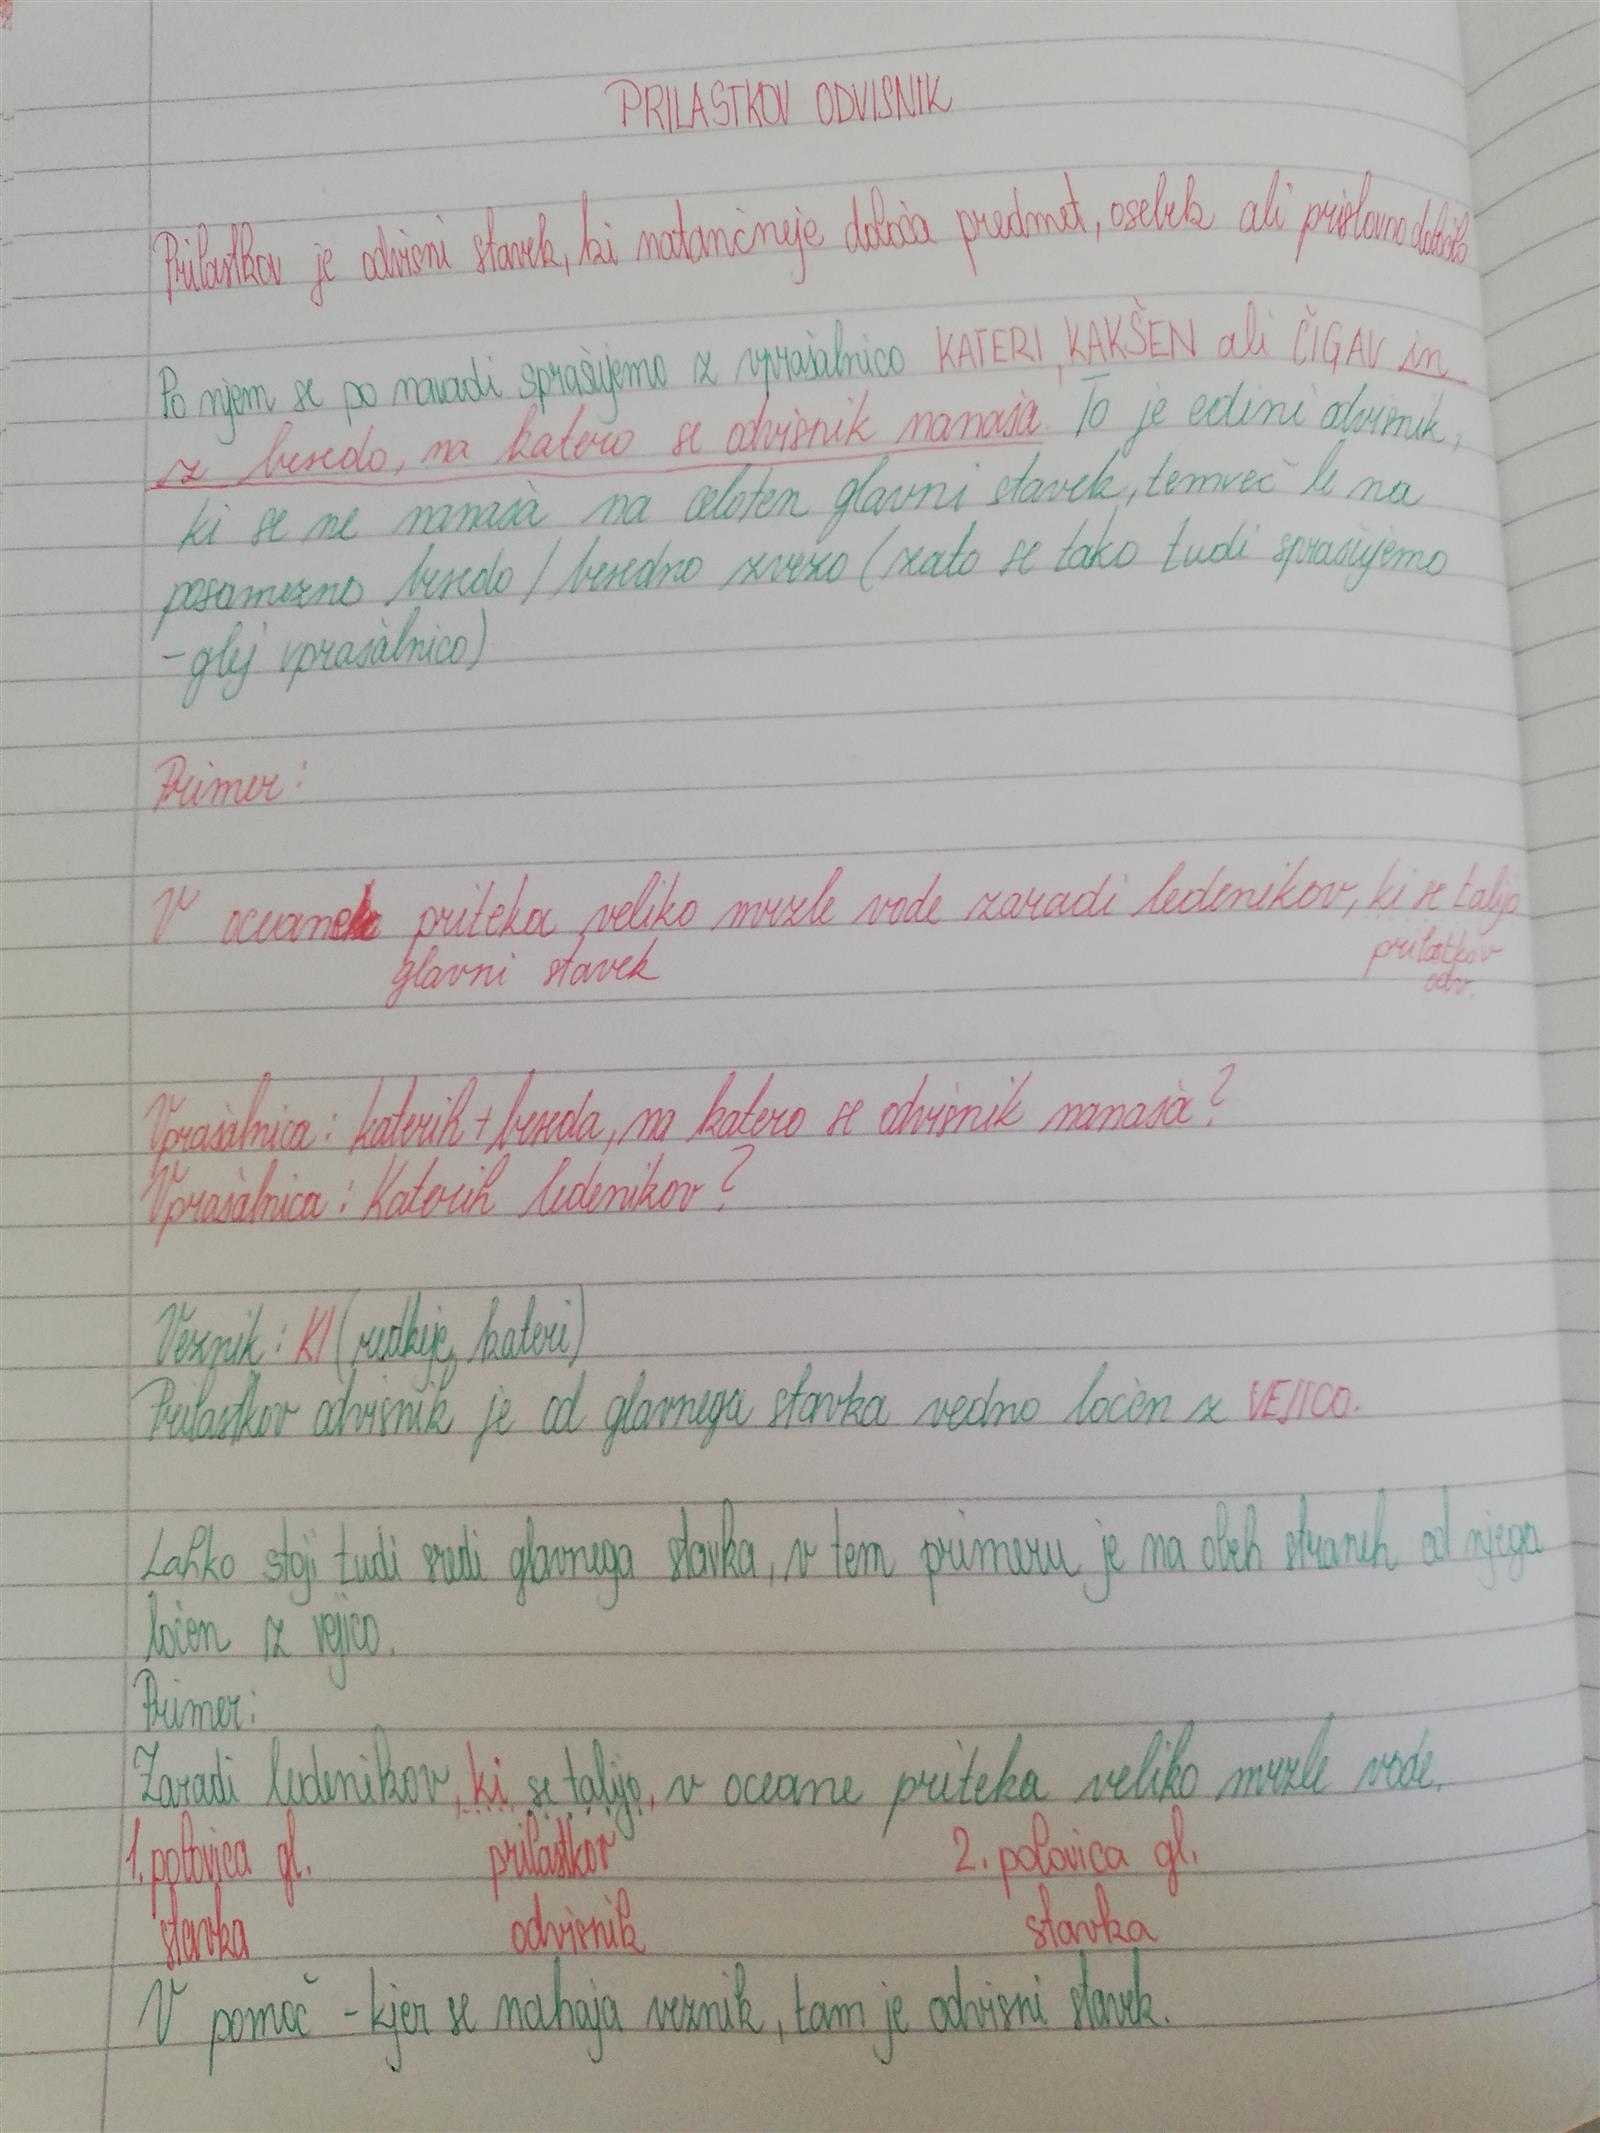 PRILASTKOV ODVISNIK
Prilastkov je odvisni stavek, ki natančneje določa predmet, osebek ali prislovno določilo
Po njem se po navadi sprašujemo z vprašalnico KATERI, KAKŠEN ali ČIGAV in
z besedo, na katero se odvisnik nanaša. To je edini odvisnik,
ki se ne nanaša na celoten glavni stavek, temveč le na
posamezno besedo / besedno zvezo (zato se tako tudi sprašujemo
- glej vprašalnico)
Primer:
V oceane priteka veliko mrzle vode zaradi ledenikov, ki se talijo
glavni stavek prilastkov
odv.
Vprašalnica: katerih + beseda, na katero se odvisnik nanaša?
Vprašalnica: Katerih ledenikov?
Veznik: KI (redkeje kateri)
Prilastkov odvisnik je od glavnega stavka vedno ločen z VEJICO.
Lahko stoji tudi sredi glavnega stavka, v tem primeru je na obeh straneh od njega
ločen z vejico.
Primer:
Zaradi ledenikov, ki se talijo, v oceane priteka veliko mrzle vode.
1. polovica gl. prilastkov 2. polovica gl.
stavka odvisnik stavka
V pomoč - kjer se nahaja veznik, tam je odvisni stavek.